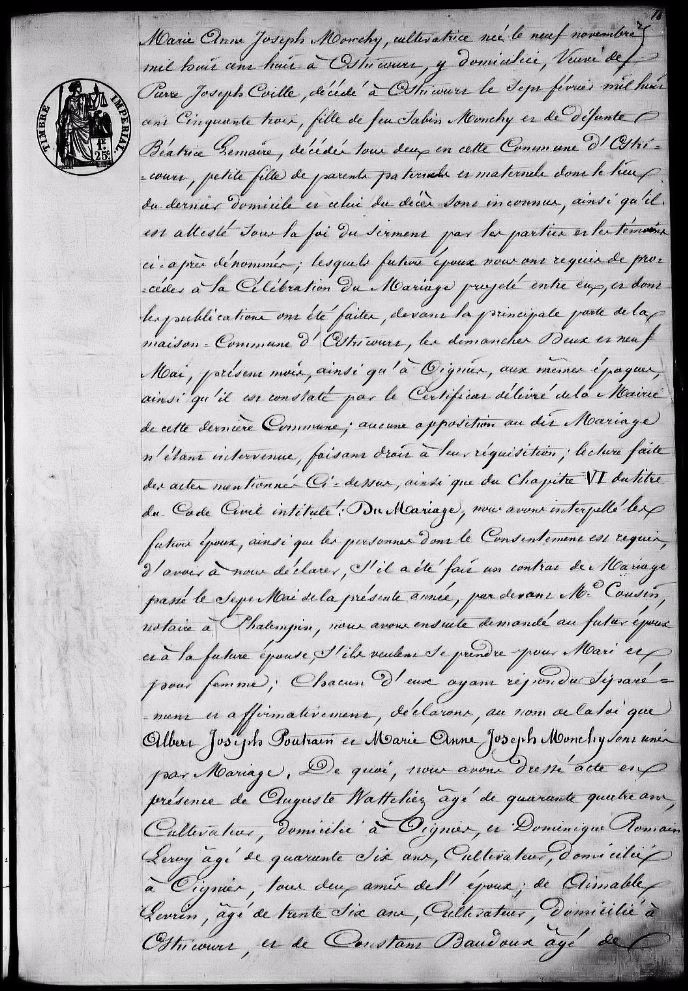 16
Marie Anne Joseph Monchy, cultivatrice née le neuf novembre
mil huit cent huit à Ostricourt, y domiciliée, Veuve de
Pierre Joseph Coille, décédé à Ostricourt le sept février mil huit
cent Cinquante trois, fille de feu Sabin Monchy et de défunte
Béatrice Lemaire, décédés tous deux en cette Commune d'Ostri-
-court, petite fille de parents paternels et maternels dont le lieu
du dernier domicile et celui du décès sont inconnus, ainsi qu'il
est attesté sous la foi du serment par les parties et les témoins
ci-après dénommés; lesquels futurs époux nous ont requis de pro-
-céder à la Célébration du Mariage projeté entre eux, et dont
les publications ont été faites, devant la principale porte de la
maison-Commune d'Ostricourt, les dimanches Deux et neuf
Mai, présent mois, ainsi qu'à Oignies, aux mêmes époques,
ainsi qu'il est constaté par le Certificat délivré de la Mairie
de cette dernière Commune; aucune opposition au dit Mariage
n'étant intervenue, faisant droit à leur réquisition; lecture faite
des actes mentionnés Ci-dessus, ainsi que du Chapitre VI du titre
du Code Civil intitulé: Du Mariage, nous avons interpellé les
futurs époux, ainsi que les personnes dont le Consentement est requis,
d'avoir à nous déclarer, S'il a été fait un contrat de Mariage
passé le Sept Mai de la présente année, par devant Me Cousin,
notaire à Phalempin, nous avons ensuite demandé au futur époux
et à la future épouse, S'ils veulent se prendre pour Mari et
pour femme; Chacun d'eux ayant répondu Séparé-
-ment et affirmativement, déclarons, au nom de la loi que
Albert Joseph Poutrain et Marie Anne Joseph Monchy sont unis
par Mariage. De quoi, nous avons dressé acte en
présence de Auguste Wattelier âgé de quarante quatre ans,
Cultivateur, domicilié à Oignies, et Dominique Romain
Leroy âgé de quarante Six ans, Cultivateur, domicilié
à Oignies, tous deux amis de l'époux; de Aimable
Levrin, âgé de trente Six ans, Cultivateur, domicilié à
Ostricourt, et de Constant Baudoux âgé de
TIMBRE IMPERIAL
1F.
25C.